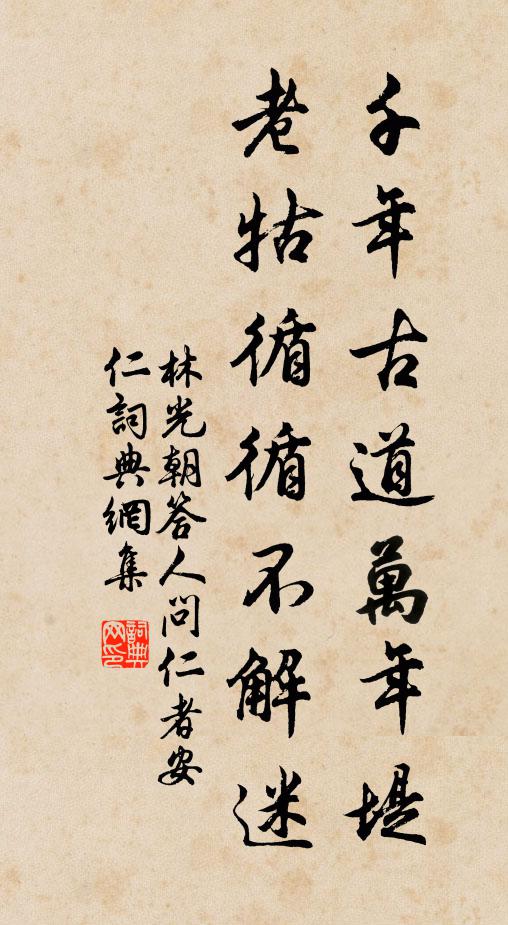 千年古道萬年堤
老牯循循不解迷
林光朝答人問仁者安
仁詞典網集
詞典
网印